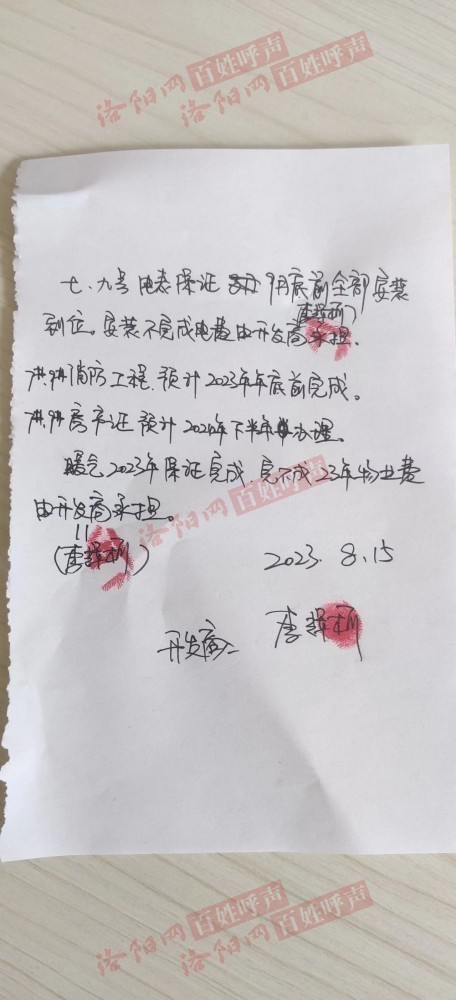 洛阳网 百姓呼声
洛阳网 百姓呼声
七、九号电表保证 9月底前全部安装
到位。安装不完成电费由开发商承担。
消防工程,预计2023年年底前完成。
房产证预计2024年下半年办理。
暖气2023年保证完成,完不成23年物业费
由开发商承担。
洛阳网 百姓呼声
2023.8.15
开发商:
洛阳网 百姓呼声
洛阳网 百姓呼声